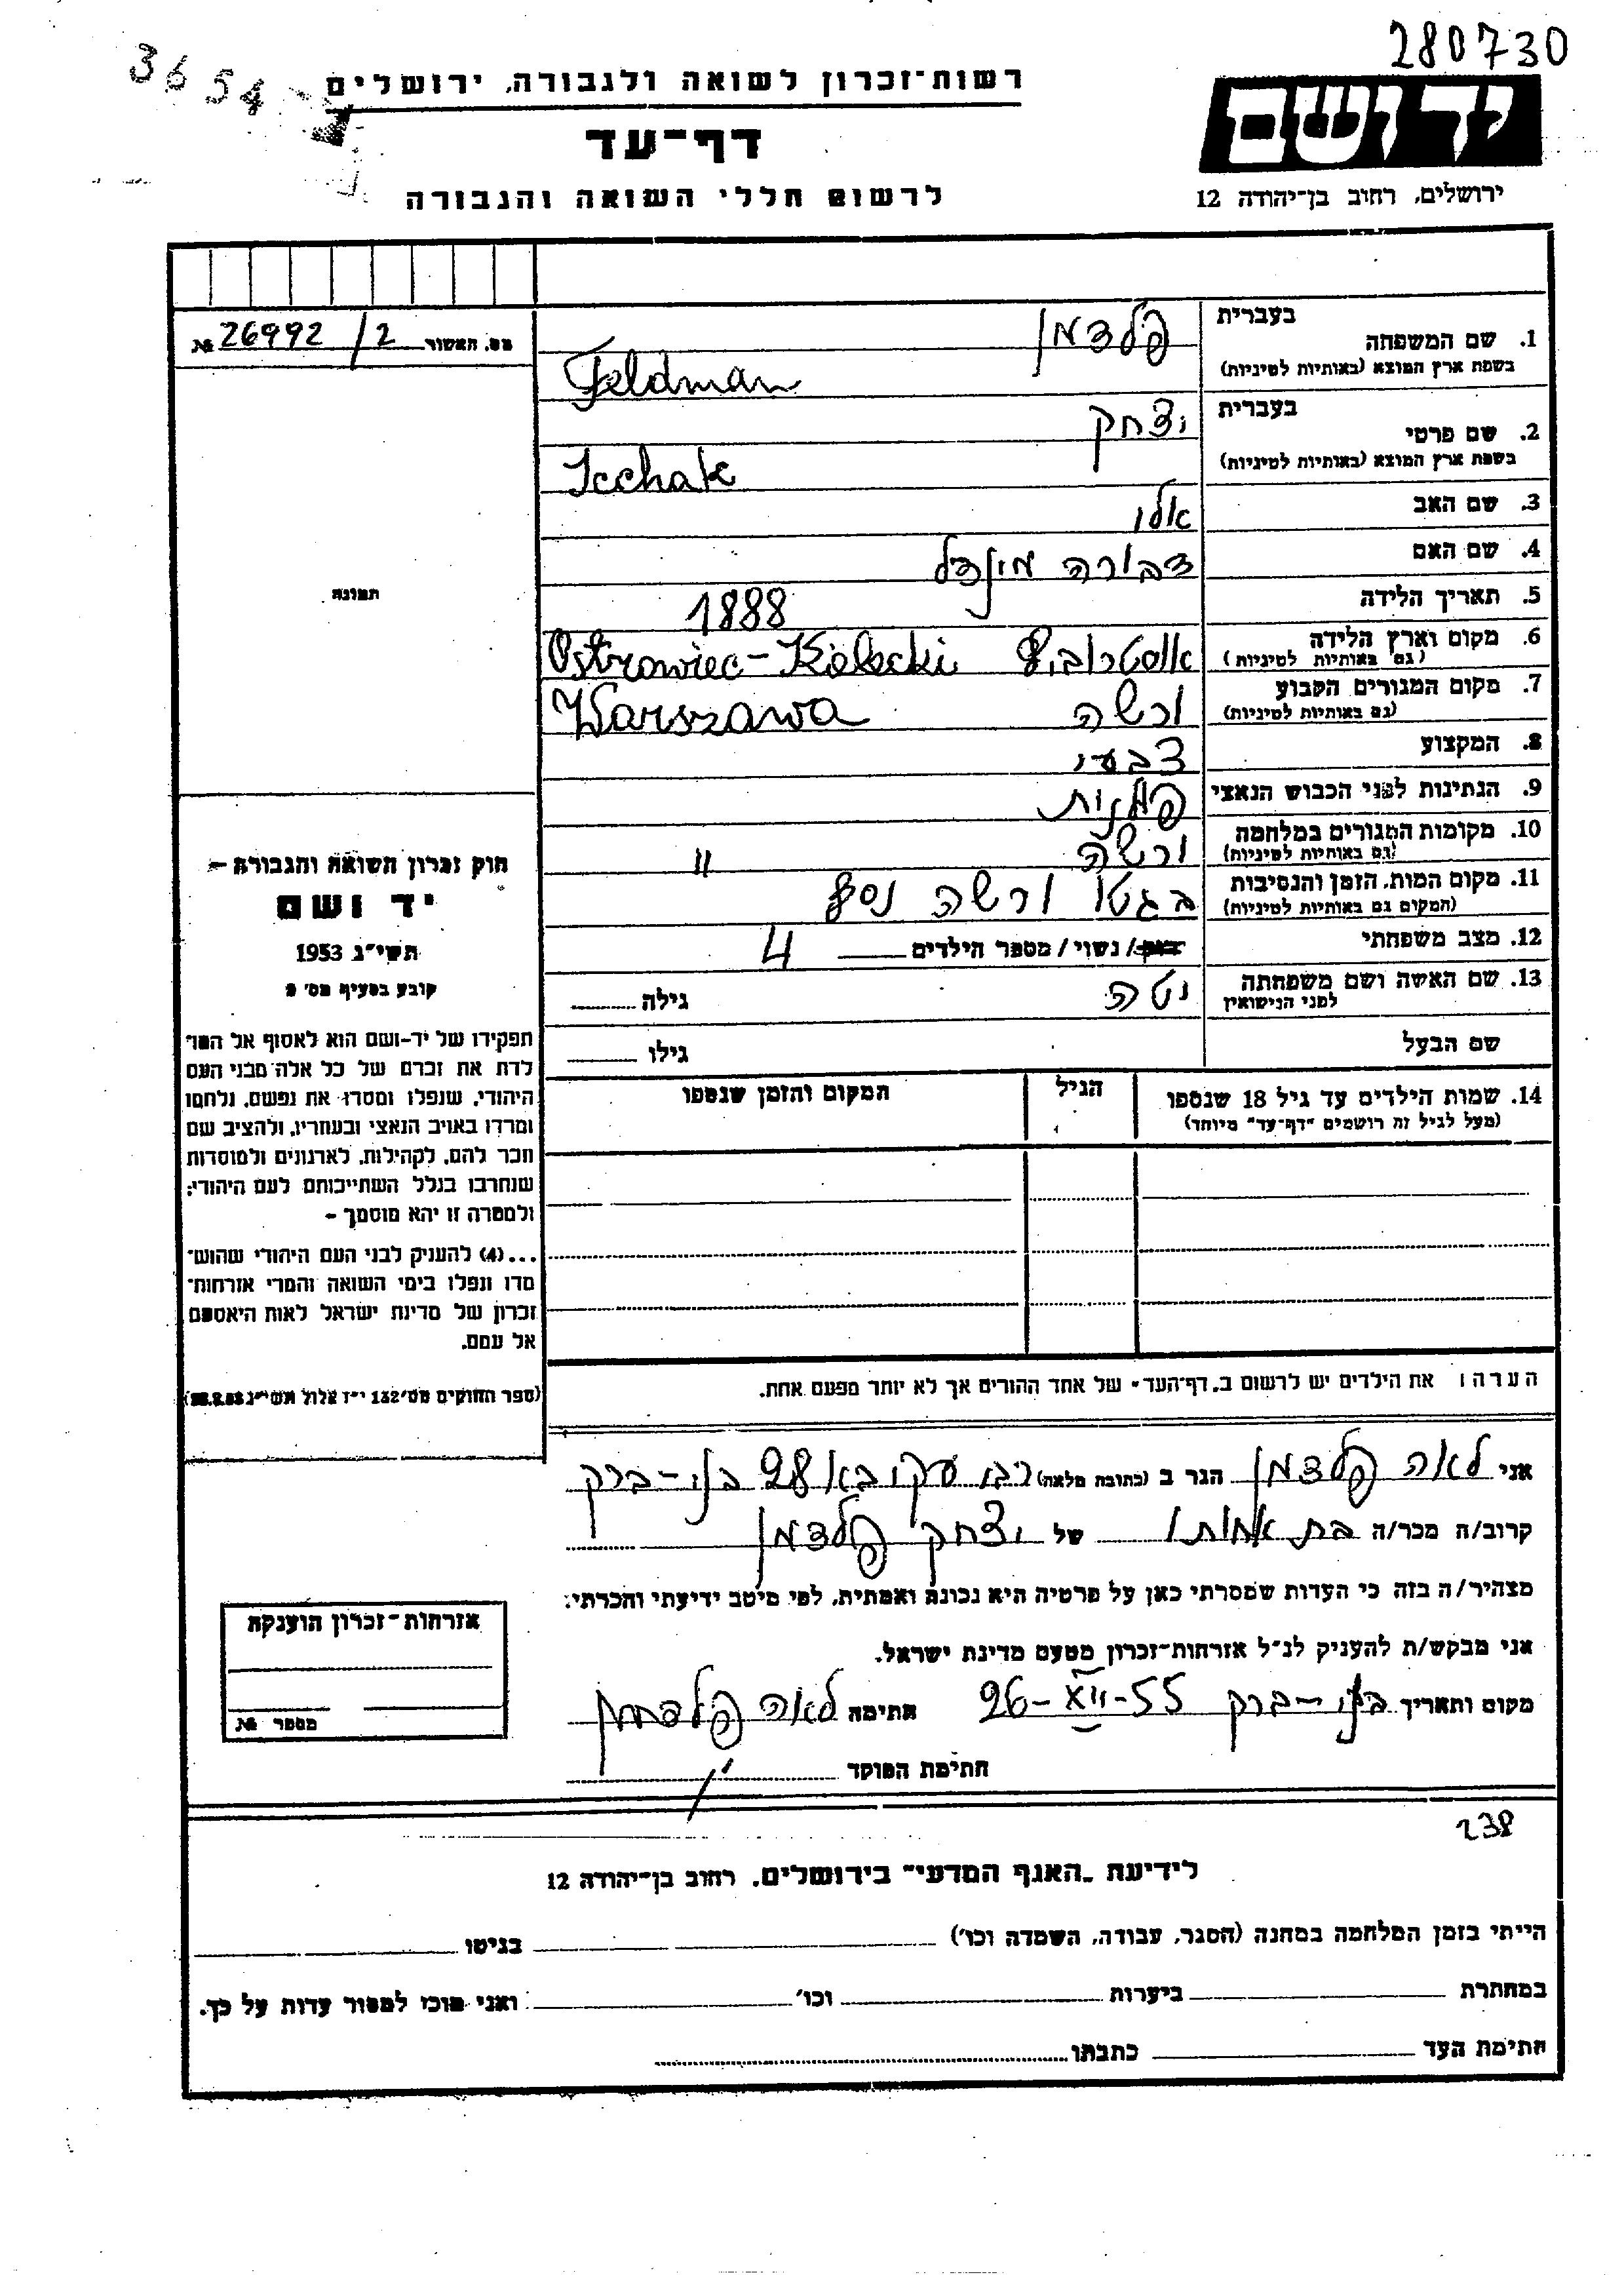 280730
3654
רשות־זכרון לשואה ולגבורה, ירושלים
יד ושם
דף־עד
ירושלים, רחוב בן־יהודה 12
לרשום חללי השואה והגבורה
מס. האשור 26992/2 №
תמונה
חוק זכרון השואה והגבורה –
יד ושם
תשי״ג 1953
קובע בסעיף מס׳ 2
תפקידו של יד־ושם הוא לאסוף אל המו־
לדת את זכרם של כל אלה מבני העם
היהודי, שנפלו ומסרו את נפשם, נלחמו
ומרדו באויב הנאצי ובעוזריו, ולהציב שם
וזכר להם, לקהילות, לארגונים ולמוסדות
שנחרבו בגלל השתייכותם לעם היהודי;
ולמטרה זו יהא מוסמך –
...(4) להעניק לבני העם היהודי שהוש־
מדו ונפלו בימי השואה והמרי אזרחות־
זכרון של מדינת ישראל לאות היאספם
אל עמם.
(ספר החוקים מס׳ 132 י״ז אלול תשי״ג 28.8.53)
1. שם המשפחה בעברית פלדמן
בשפת ארץ המוצא (באותיות לטיניות) Feldman
2. שם פרטי בעברית יצחק
בשפת ארץ המוצא (באותיות לטיניות) Icchak
3. שם האב אלי
4. שם האם דבורה מינדל
5. תאריך הלידה 1888
6. מקום וארץ הלידה אוסטרוביץ Ostrowiec-Kielecki
(גם באותיות לטיניות)
7. מקום המגורים הקבוע ורשה Warszawa
(גם באותיות לטיניות)
8. המקצוע צבעי
9. הנתינות לפני הכבוש הנאצי פולנית
10. מקומות המגורים במלחמה ורשה "
(גם באותיות לטיניות)
11. מקום המות, הזמן והנסיבות בגטו ורשה נספה
(המקום גם באותיות לטיניות)
12. מצב משפחתי רווק/ נשוי/ מספר הילדים 4
13. שם האשה ושם משפחתה יטה גילה
לפני הנישואין
שם הבעל גילו
14. שמות הילדים עד גיל 18 שנספו הגיל המקום והזמן שנספו
(מעל לגיל זה רושמים "דף־עד" מיוחד)
הערה: את הילדים יש לרשום ב„דף־העד" של אחד ההורים אך לא יותר מפעם אחת.
אני לאה פלדמן הגר ב (כתובת מלאה) רבי עקיבא 28 בני-ברק
קרוב/ה מכר/ה בת אחותו של יצחק פלדמן
מצהיר/ה בזה כי העדות שמסרתי כאן על פרטיה היא נכונה ואמתית, לפי מיטב ידיעתי והכרתי.
אני מבקש/ת להעניק לנ״ל אזרחות־זכרון מטעם מדינת ישראל.
מקום ותאריך בני-ברק 26-XII-55 חתימה לאה פלדמן
חתימת הפוקד
אזרחות־זכרון הוענקה
מספר №
238
לידיעת „האגף המדעי" בירושלים, רחוב בן־יהודה 12
הייתי בזמן המלחמה במחנה (הסגר, עבודה, השמדה וכו׳) בגיטו
במחתרת ביערות וכו׳ ואני מוכן למסור עדות על כך.
חתימת העד כתבתו